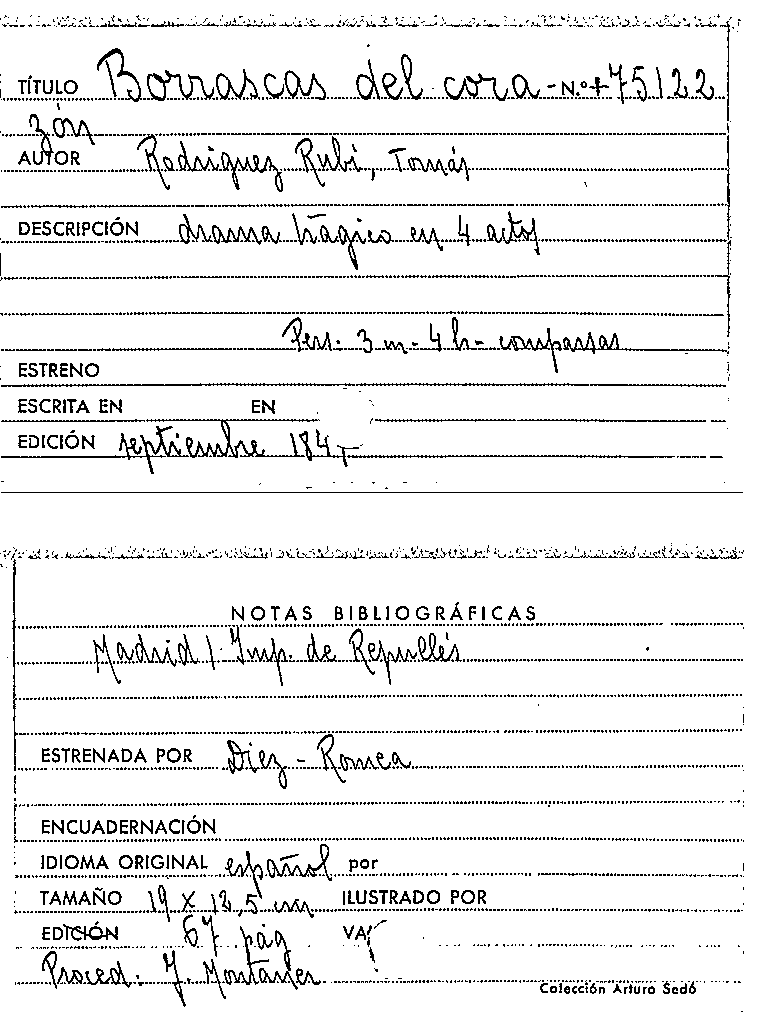 TÍTULO Borrascas del cora- N.º + 75122
zón
AUTOR Rodriguez Rubí, Tomás
DESCRIPCIÓN drama trágico en 4 actos
Pers. 3 m- 4 h- comparsas
ESTRENO
ESCRITA EN EN
EDICIÓN septiembre 184-
NOTAS BIBLIOGRÁFICAS
Madrid / Imp. de Repullés
ESTRENADA POR Diez - Romea
ENCUADERNACIÓN
IDIOMA ORIGINAL español por
TAMAÑO 19 x 12,5 cm ILUSTRADO POR
EDICIÓN 67 pág VA
Proced. J. Montaner
Colección Arturo Sedó